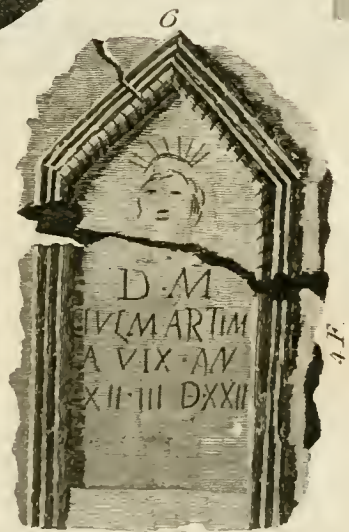 6
D·M
IVLMARTIM
A VIX·AN
XII·III D·XXII
4 F.